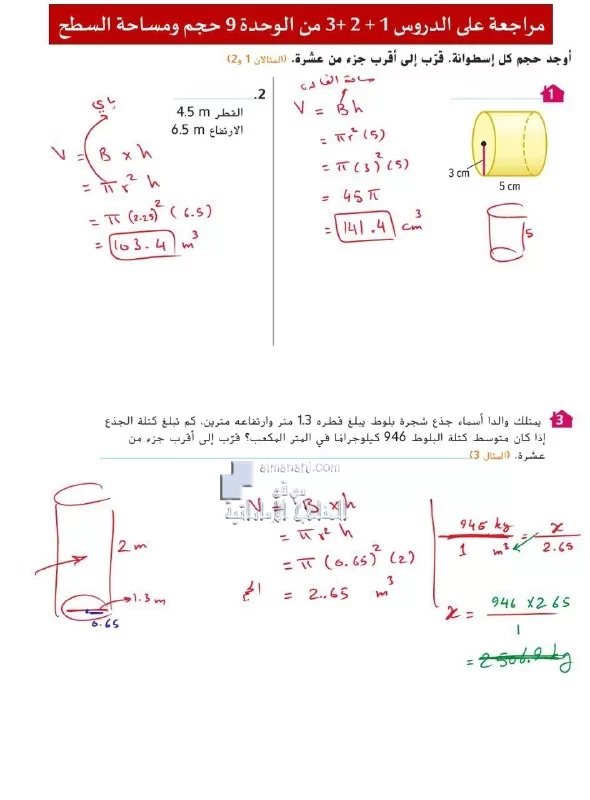 مراجعة على الدروس 1 + 2 +3 من الوحدة 9 حجم ومساحة السطح
أوجد حجم كل إسطوانة. قرّب إلى أقرب جزء من عشرة. (المثالان 1 و2)
1
3 cm
5 cm
5
مساحة القاعدة
V = B h
= πr² (5)
= π (3)² (5)
= 45 π
= 141.4 cm³
2.
القطر 4.5 m
الارتفاع 6.5 m
باي
V = B x h
= π r² h
= π (2.25)² (6.5)
= 103.4 m³
3 يمتلك والدا أسماء جذع شجرة بلوط يبلغ قطره 1.3 متر وارتفاعه مترين. كم تبلغ كتلة الجذع
إذا كان متوسط كتلة البلوط 946 كيلوجرامًا في المتر المكعب؟ قرّب إلى أقرب جزء من
عشرة. (المثال 3)
almanahj.com
موقع
المناهج الإماراتية
2 m
1.3 m
0.65
V = B x h
= π r² h
= π (0.65)² (2)
= 2.65 m³
946 kg / 1 m³ = x / 2.65
x = 946 x 2.65 / 1
= 2506.9 kg